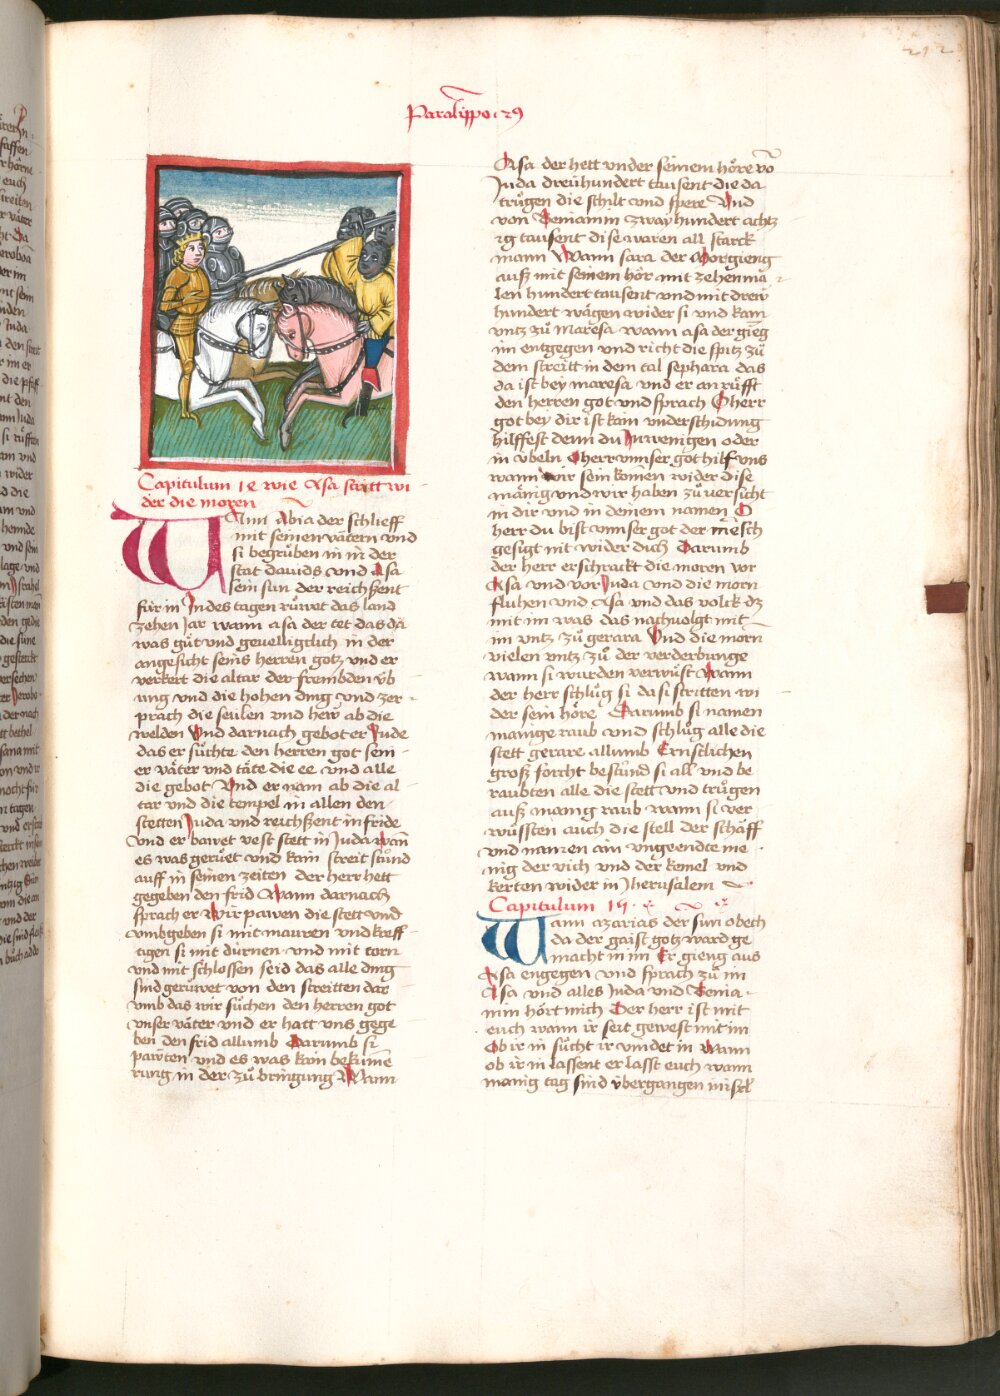 212
Paralippo 29
Capitulum 14 wie Asa stritt wi
der die moren
Wann Abia der schlieff
mit seinen vätern vnd
si begrůben in in der
stat dauids vnd Asa
sein sun der reichsent
für in Indes tagen růwet das land
zehen Jar wann asa der tet das da
was gůt vnd geuelligclich in der
angesicht seins herren gotz vnd er
verkert die altar der frembden üb
ung vnd die hohen ding vnd zer
prach die seülen vnd hew ab die
welden Vnd darnach gebot er Jude
das er sůchte den herren got sein
er väter vnd täte die ee vnd alle
die gebot Vnd er nam ab die al
tar vnd die tempel in allen den
stetten Juda vnd reichsent in fride
vnd er bawet vest stett in Juda wan
es was gerůet vnd kain streit stůnd
auff in seinen zeiten der herr hett
gegeben den frid Wann darnach
sprach er Wir pawen die stett vnd
vmbgeben si mit mauren vnd kreff
tigen si mit dürnen vnd mit torn
vnd mit schlossen seid das alle ding
sind gerůwet von den streitten dar
vmb das wir sůchen den herren got
vnser väter vnd er hatt vns gege
ben den frid allumb Darumb si
pawten vnd es was kain bekume
rung in der zů bringung Wann
Asa der hett vnder seinem höre võ
Juda dreühundert tausent die da
trůgen die schilt vnd spere Vnd
von Beniamin zway hundert achtz
ig tausent dise waren all starck
mann Wann sara der Morgieng
auß mit seinem hör mit zehenma
len hundert tausent vnd mit drew
hundert wägen wider si vnd kam
vntz zů maresa wann asa der gieg
im entgegen vnd richt die spitz zů
dem streitt in dem tal sephara das
da ist bey maresa vnd er an růfft
den herren got vnd sprach O herr
got bey dir ist kain vnderschidung
hilffest denn du In wenigen oder
in vbeln O herr vnser got hilf vns
wann wir sein komen wider dise
mänig vnd wir haben zů versicht
in dir vnd in deinem namen O
herr du bist vnnser got der mēsch
gesigt nit wider dich Darumb
der herr erschrackt die moren vor
Asa vnd vor Juda vnd die morn
fluhen vnd Asa vnd das volck dz
mit im was das nachuolgt mit
im vntz zů gerara Vnd die morn
vielen vntz zů der verderbunge
wann si wurden verwůst Wann
der herr schlůg si da si stritten wi
der sein höre Darumb si namen
manige raub vnd schlůg alle die
stett gerare allumb Ernstlichen
groß forcht bestůnd si all vnd be
raubten alle die stett vnd trůgen
auß manig raub wann si ver
wüssten auch die stell der schäff
vnd namen ain vngeendte me
nig der vich vnd der kemel vnd
kerten wider in Jherusalem
Capitulum 15
Wann azarias der sun obech
da der gaist gotz ward ge
macht in im Er gieng aus
Asa engegen vnd sprach zů im
Asa vnd alles Juda vnd Benia
min hört mich Der herr ist mit
euch wann ir seit gewest mit im
Ob ir in sůcht ir vindet in Wann
ob ir in lassent er lasst euch wann
manig tag sind vbergangen in isrl